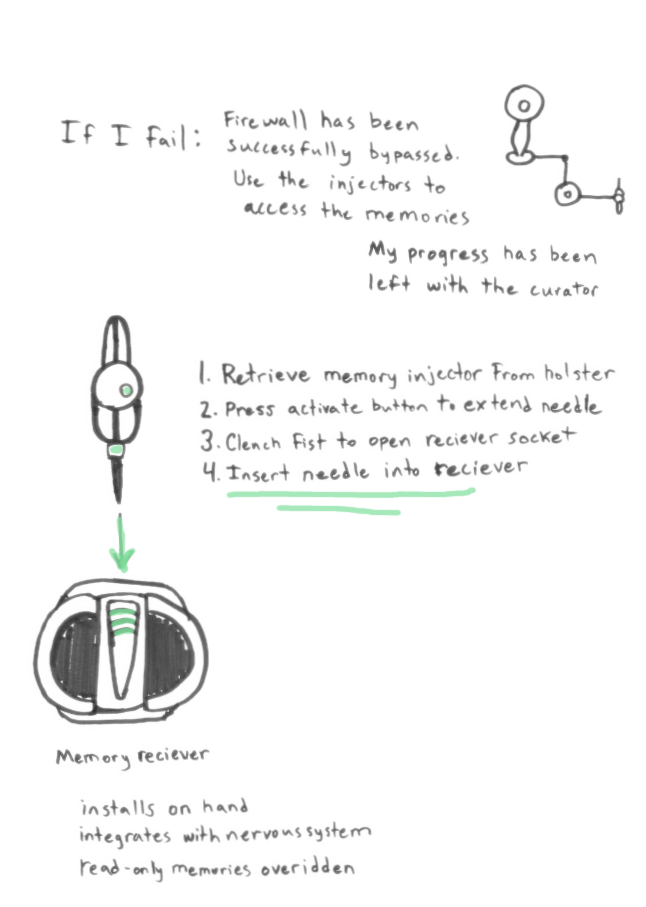 If I fail:
Firewall has been
successfully bypassed.
Use the injectors to
access the memories
My progress has been
left with the curator
1. Retrieve memory injector from holster
2. Press activate button to extend needle
3. Clench fist to open reciever socket
4. Insert needle into reciever
Memory reciever
installs on hand
integrates with nervous system
read-only memories overidden